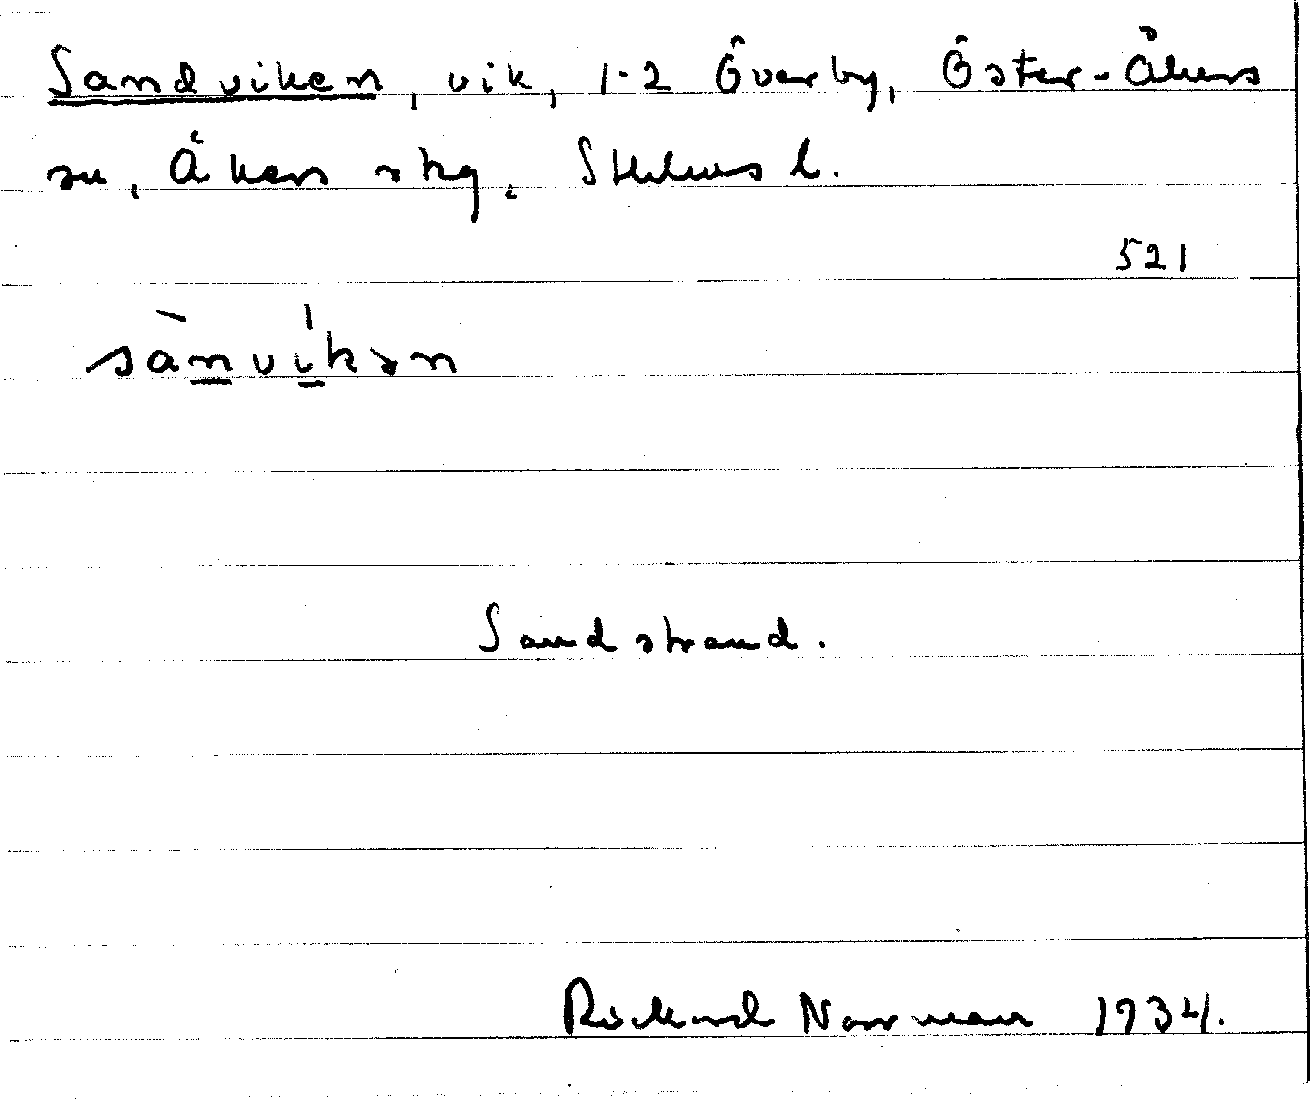 Sandviken, vik, 1-2 Överby, Öster-Åkers
sn, Åkers skg, Sthlms l.
521
sànvíkən
Sandstrand.
Rickard Norrman 1934.